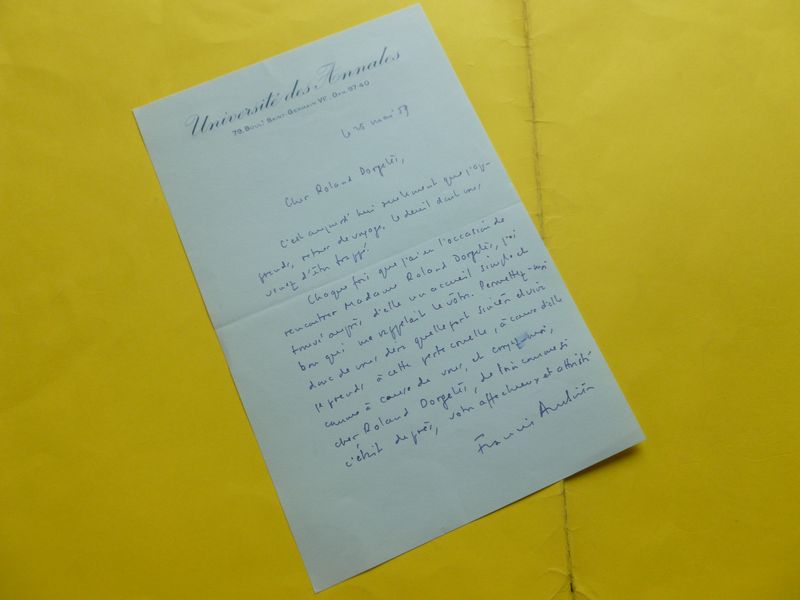 Université des Annales
79. Boul! Saint-Germain VIe. Dan. 97-40
le 25 mai 59
Cher Roland Dorgelès,
C'est aujourd'hui seulement que j'ap-
prends, retour de voyage, le deuil dont vous
venez d'être frappé.
Chaque fois que j'ai eu l'occasion de
rencontrer Madame Roland Dorgelès, j'ai
trouvé auprès d'elle un accueil simple et
bon qui me rappelait le vôtre. Permettez-moi
donc de vous dire quelle part sincère et vive
je prends à cette perte cruelle, à cause d'elle
comme à cause de vous, et croyez-moi,
cher Roland Dorgelès, de loin comme si
c'était de près, votre affectueux et attristé
Francis Ambrière